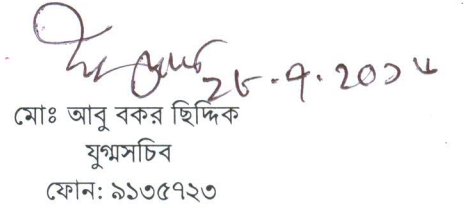 ২৮.৭.২০১৫
মোঃ আবু বকর ছিদ্দিক
যুগ্মসচিব
ফোন: ৯১৩৫৭২৩